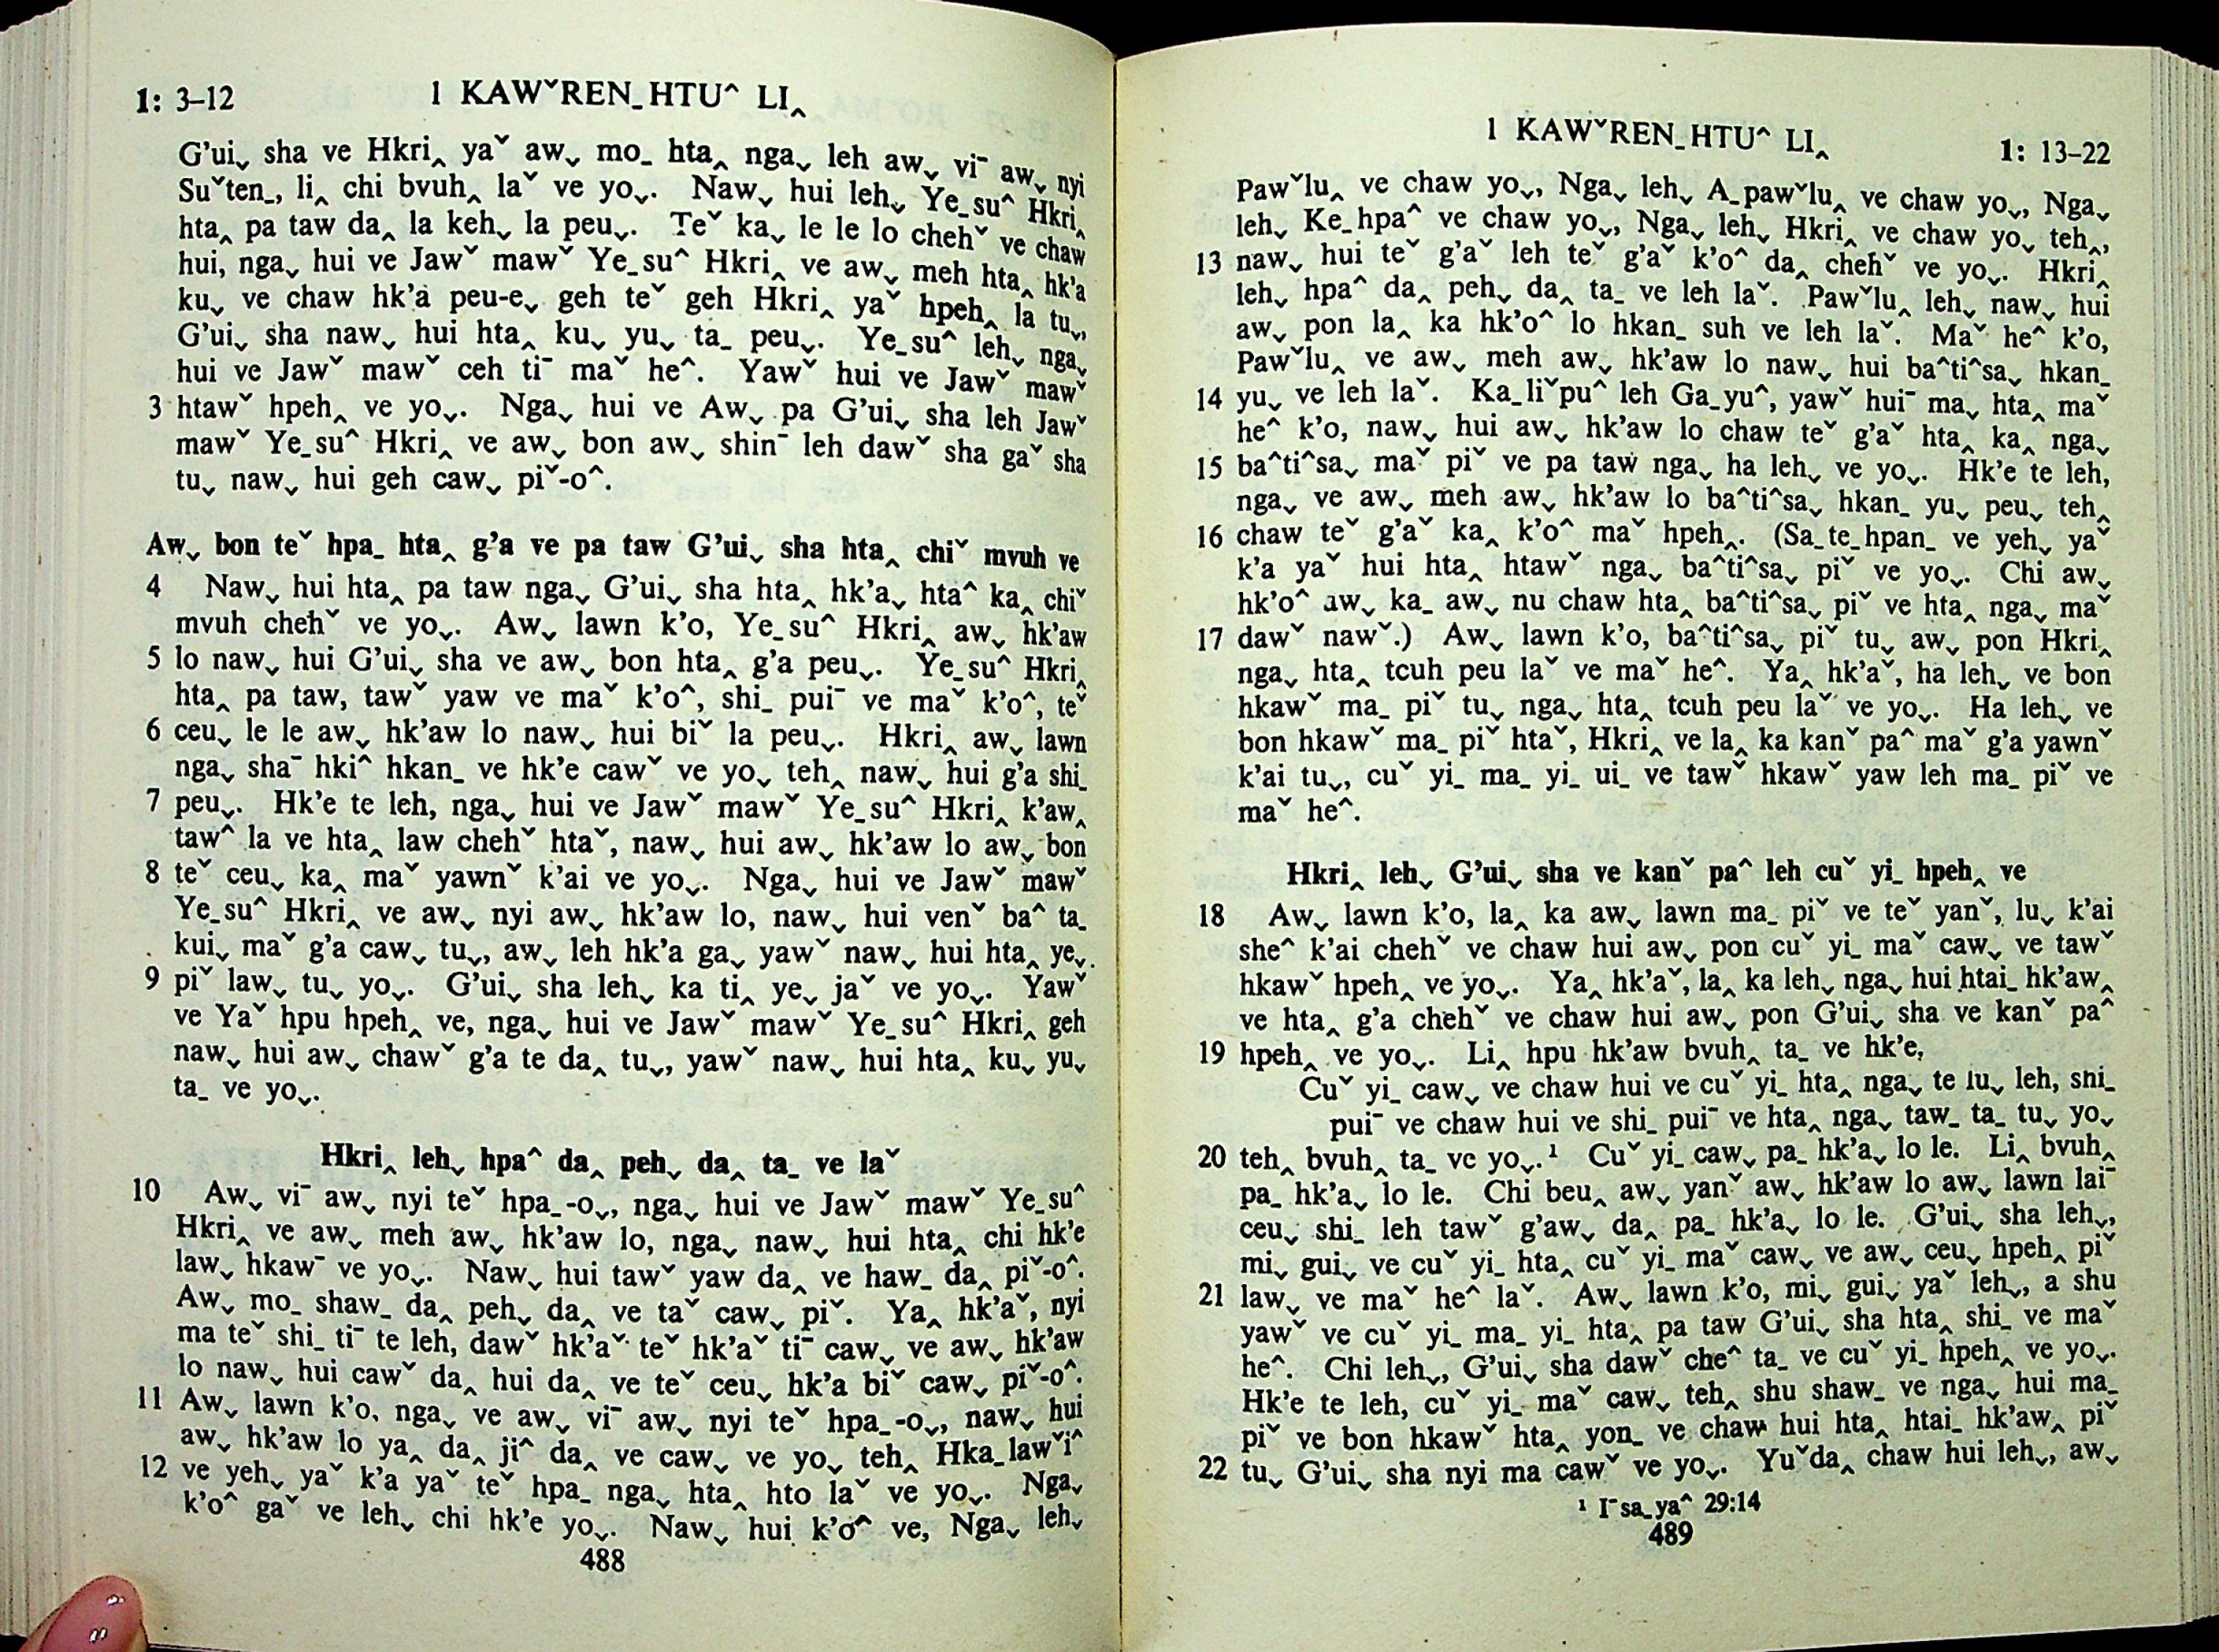 1: 3–12 1 KAWˇREN_HTU^ LI‸
G’ui⌄ sha ve Hkri‸ yaˇ aw⌄ mo_ hta‸ nga⌄ leh aw⌄ vi¯ aw⌄ nyi
Suˇten_, li‸ chi bvuh‸ laˇ ve yo⌄. Naw⌄ hui leh⌄ Ye_su^ Hkri‸
hta‸ pa taw da‸ la keh⌄ la peu⌄. Teˇ ka⌄ le le lo chehˇ ve chaw
hui, nga⌄ hui ve Jawˇ mawˇ Ye_su^ Hkri‸ ve aw⌄ meh hta‸ hk’a
ku⌄ ve chaw hk’a peu-e⌄ geh teˇ geh Hkri‸ yaˇ hpeh‸ la tu⌄,
G’ui⌄ sha naw⌄ hui hta‸ ku⌄ yu⌄ ta_ peu⌄. Ye_su^ leh⌄ nga⌄
hui ve Jawˇ mawˇ ceh ti¯ maˇ he^. Yawˇ hui ve Jawˇ mawˇ
3 htawˇ hpeh‸ ve yo⌄. Nga⌄ hui ve Aw⌄ pa G’ui⌄ sha leh Jawˇ
mawˇ Ye_su^ Hkri‸ ve aw⌄ bon aw⌄ shin¯ leh dawˇ sha gaˇ sha
tu⌄ naw⌄ hui geh caw⌄ piˇ-o^.
Aw⌄ bon teˇ hpa_ hta‸ g’a ve pa taw G’ui⌄ sha hta‸ chiˇ mvuh ve
4 Naw⌄ hui hta‸ pa taw nga⌄ G’ui⌄ sha hta‸ hk’a⌄ hta^ ka‸ chiˇ
mvuh chehˇ ve yo⌄. Aw⌄ lawn k’o, Ye_su^ Hkri‸ aw⌄ hk’aw
5 lo naw⌄ hui G’ui⌄ sha ve aw⌄ bon hta‸ g’a peu⌄. Ye_su^ Hkri‸
hta‸ pa taw, tawˇ yaw ve maˇ k’o^, shi_ pui¯ ve maˇ k’o^, teˇ
6 ceu⌄ le le aw⌄ hk’aw lo naw⌄ hui biˇ la peu⌄. Hkri‸ aw⌄ lawn
nga⌄ sha¯ hki^ hkan_ ve hk’e cawˇ ve yo⌄ teh‸ naw⌄ hui g’a shi_
7 peu⌄. Hk’e te leh, nga⌄ hui ve Jawˇ mawˇ Ye_su^ Hkri‸ k’aw‸
taw^ la ve hta‸ law chehˇ htaˇ, naw⌄ hui aw⌄ hk’aw lo aw⌄ bon
8 teˇ ceu⌄ ka‸ maˇ yawnˇ k’ai ve yo⌄. Nga⌄ hui ve Jawˇ mawˇ
Ye_su^ Hkri‸ ve aw⌄ nyi aw⌄ hk’aw lo, naw⌄ hui venˇ ba^ ta_
kui⌄ maˇ g’a caw⌄ tu⌄, aw⌄ leh hk’a ga⌄ yawˇ naw⌄ hui hta‸ ye⌄
9 piˇ law⌄ tu⌄ yo⌄. G’ui⌄ sha leh⌄ ka ti‸ ye⌄ jaˇ ve yo⌄. Yawˇ
ve Yaˇ hpu hpeh‸ ve, nga⌄ hui ve Jawˇ mawˇ Ye_su^ Hkri‸ geh
naw⌄ hui aw⌄ chawˇ g’a te da‸ tu⌄, yawˇ naw⌄ hui hta‸ ku⌄ yu⌄
ta_ ve yo⌄.
Hkri‸ leh⌄ hpa^ da‸ peh⌄ da‸ ta_ ve laˇ
10 Aw⌄ vi¯ aw⌄ nyi teˇ hpa_-o⌄, nga⌄ hui ve Jawˇ mawˇ Ye_su^
Hkri‸ ve aw⌄ meh aw⌄ hk’aw lo, nga⌄ naw⌄ hui hta‸ chi hk’e
law⌄ hkaw¯ ve yo⌄. Naw⌄ hui tawˇ yaw da‸ ve haw_ da‸ piˇ-o^.
Aw⌄ mo_ shaw_ da‸ peh⌄ da‸ ve taˇ caw⌄ piˇ. Ya‸ hk’aˇ, nyi
ma teˇ shi_ ti¯ te leh, dawˇ hk’aˇ teˇ hk’aˇ ti¯ caw⌄ ve aw⌄ hk’aw
lo naw⌄ hui cawˇ da‸ hui da‸ ve teˇ ceu⌄ hk’a biˇ caw⌄ piˇ-o^.
11 Aw⌄ lawn k’o, nga⌄ ve aw⌄ vi¯ aw⌄ nyi teˇ hpa_-o⌄, naw⌄ hui
aw⌄ hk’aw lo ya‸ da‸ ji^ da‸ ve caw⌄ ve yo⌄ teh‸ Hka_lawˇi^
12 ve yeh⌄ yaˇ k’a yaˇ teˇ hpa_ nga⌄ hta‸ hto laˇ ve yo⌄. Nga⌄
k’o^ gaˇ ve leh⌄ chi hk’e yo⌄. Naw⌄ hui k’o^ ve, Nga⌄ leh⌄
488
1 KAWˇREN_HTU^ LI‸ 1: 13–22
Pawˇlu‸ ve chaw yo⌄, Nga⌄ leh⌄ A_pawˇlu‸ ve chaw yo⌄, Nga⌄
leh⌄ Ke_hpa^ ve chaw yo⌄, Nga⌄ leh⌄ Hkri‸ ve chaw yo⌄ teh‸,
13 naw⌄ hui teˇ g’aˇ leh teˇ g’aˇ k’o^ da‸ chehˇ ve yo⌄. Hkri‸
leh⌄ hpa^ da‸ peh⌄ da‸ ta_ ve leh laˇ. Pawˇlu‸ leh⌄ naw⌄ hui
aw⌄ pon la‸ ka hk’o^ lo hkan_ suh ve leh laˇ. Maˇ he^ k’o,
Pawˇlu‸ ve aw⌄ meh aw⌄ hk’aw lo naw⌄ hui ba^ti^sa⌄ hkan_
14 yu⌄ ve leh laˇ. Ka_liˇpu^ leh Ga_yu^, yawˇ hui¯ ma⌄ hta‸ maˇ
he^ k’o, naw⌄ hui aw⌄ hk’aw lo chaw teˇ g’aˇ hta‸ ka‸ nga⌄
15 ba^ti^sa⌄ maˇ piˇ ve pa taw nga⌄ ha leh⌄ ve yo⌄. Hk’e te leh,
nga⌄ ve aw⌄ meh aw⌄ hk’aw lo ba^ti^sa⌄ hkan_ yu⌄ peu⌄ teh‸
16 chaw teˇ g’aˇ ka‸ k’o^ maˇ hpeh‸. (Sa_te_hpan_ ve yeh⌄ yaˇ
k’a yaˇ hui hta‸ htawˇ nga⌄ ba^ti^sa⌄ piˇ ve yo⌄. Chi aw⌄
hk’o^ aw⌄ ka_ aw⌄ nu chaw hta‸ ba^ti^sa⌄ piˇ ve hta‸ nga⌄ maˇ
17 dawˇ nawˇ.) Aw⌄ lawn k’o, ba^ti^sa⌄ piˇ tu⌄ aw⌄ pon Hkri‸
nga⌄ hta‸ tcuh peu laˇ ve maˇ he^. Ya‸ hk’aˇ, ha leh⌄ ve bon
hkawˇ ma_ piˇ tu⌄ nga⌄ hta‸ tcuh peu laˇ ve yo⌄. Ha leh⌄ ve
bon hkawˇ ma_ piˇ htaˇ, Hkri‸ ve la‸ ka kanˇ pa^ maˇ g’a yawnˇ
k’ai tu⌄, cuˇ yi_ ma_ yi_ ui_ ve tawˇ hkawˇ yaw leh ma_ piˇ ve
maˇ he^.
Hkri‸ leh⌄ G’ui⌄ sha ve kanˇ pa^ leh cuˇ yi_ hpeh‸ ve
18 Aw⌄ lawn k’o, la‸ ka aw⌄ lawn ma_ piˇ ve teˇ yanˇ, lu⌄ k’ai
she^ k’ai chehˇ ve chaw hui aw⌄ pon cuˇ yi_ maˇ caw⌄ ve tawˇ
hkawˇ hpeh‸ ve yo⌄. Ya‸ hk’aˇ, la‸ ka leh⌄ nga⌄ hui htai_ hk’aw‸
ve hta‸ g’a chehˇ ve chaw hui aw⌄ pon G’ui⌄ sha ve kanˇ pa^
19 hpeh‸ ve yo⌄. Li‸ hpu hk’aw bvuh‸ ta_ ve hk’e,
Cuˇ yi_ caw⌄ ve chaw hui ve cuˇ yi_ hta‸ nga⌄ te lu⌄ leh, shi_
pui¯ ve chaw hui ve shi_ pui¯ ve hta‸ nga⌄ taw_ ta_ tu⌄ yo⌄
20 teh‸ bvuh‸ ta_ ve yo⌄.¹ Cuˇ yi_ caw⌄ pa_ hk’a⌄ lo le. Li‸ bvuh‸
pa_ hk’a⌄ lo le. Chi beu‸ aw⌄ yanˇ aw⌄ hk’aw lo aw⌄ lawn lai¯
ceu⌄ shi_ leh tawˇ g’aw⌄ da‸ pa_ hk’a⌄ lo le. G’ui⌄ sha leh⌄,
mi⌄ gui⌄ ve cuˇ yi_ hta‸ cuˇ yi_ maˇ caw⌄ ve aw⌄ ceu⌄ hpeh‸ piˇ
21 law⌄ ve maˇ he^ laˇ. Aw⌄ lawn k’o, mi⌄ gui⌄ yaˇ leh⌄, a shu
yawˇ ve cuˇ yi_ ma_ yi_ hta‸ pa taw G’ui⌄ sha hta‸ shi_ ve maˇ
he^. Chi leh⌄, G’ui⌄ sha dawˇ che^ ta_ ve cuˇ yi_ hpeh‸ ve yo⌄.
Hk’e te leh, cuˇ yi_ maˇ caw⌄ teh‸ shu shaw_ ve nga⌄ hui ma_
piˇ ve bon hkawˇ hta‸ yon_ ve chaw hui hta‸ htai_ hk’aw‸ piˇ
22 tu⌄ G’ui⌄ sha nyi ma cawˇ ve yo⌄. Yuˇda‸ chaw hui leh⌄, aw⌄
¹ I¯sa_ya^ 29:14
489